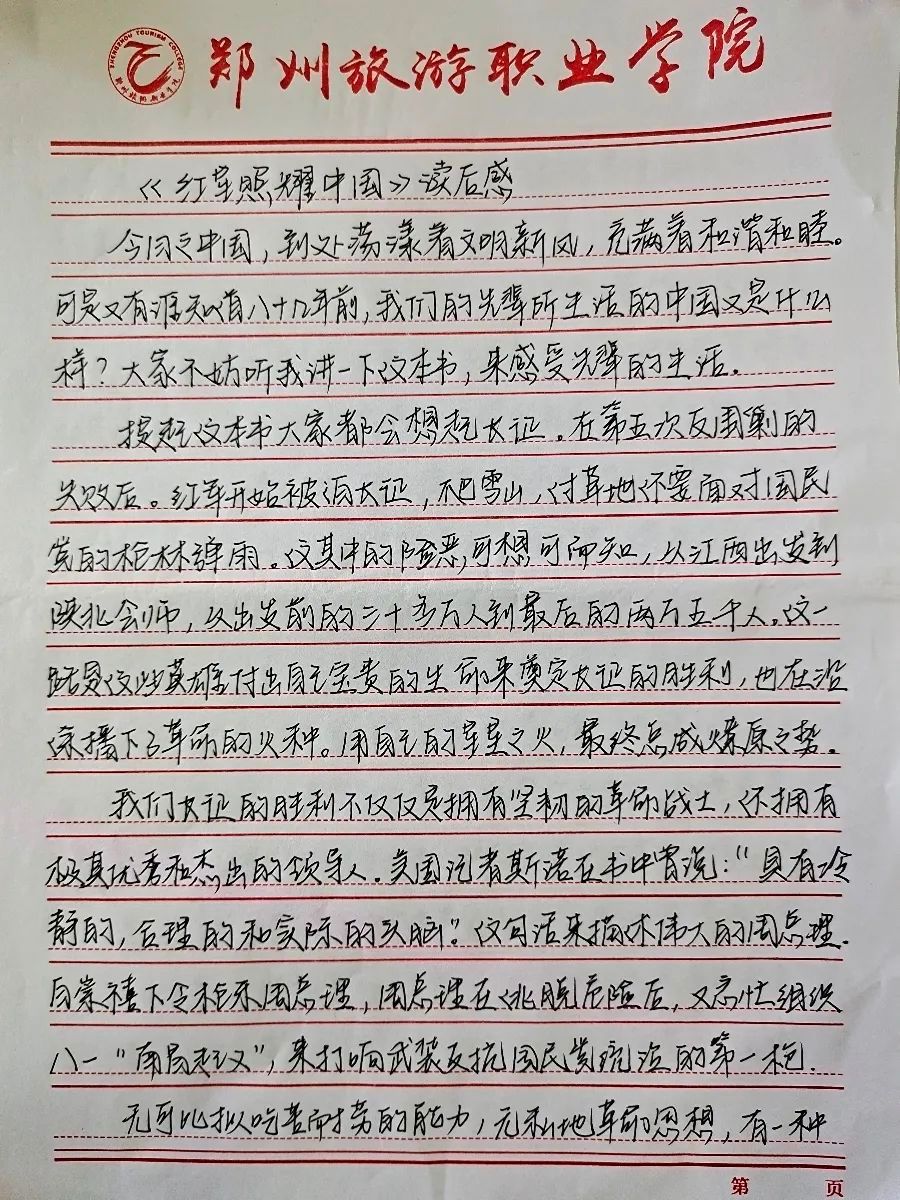 ZHENGZHOU TOURISM COLLEGE
郑州旅游职业学院
郑州旅游职业学院
《红军照耀中国》读后感
今日之中国，到处荡漾着文明新风，充满着和谐和睦。
可是又有谁知道八十几年前，我们的先辈所生活的中国又是什么
样？大家不妨听我讲一下这本书，来感受先辈的生活。
提起这本书大家都会想起长征。在第五次反围剿的
失败后。红军开始被迫长征，爬雪山，过草地还要面对国民
党的枪林弹雨。这其中的险恶，可想可而知，从江西出发到
陕北会师，从出发前的二十多万人到最后的两万五千人。这一
路是这些英雄付出自己宝贵的生命来奠定长征的胜利，也在沿
途播下了革命的火种。用自己的星星之火，最终总成燎原之势。
我们长征的胜利不仅仅是拥有坚韧的革命战士，还拥有
极其优秀和杰出的领导人。美国记者斯诺在书中曾说：“具有冷
静的，合理的和实际的头脑”。这句话来描述伟大的周总理.
自蒋下令枪杀周总理，周总理在逃脱危险后，又急忙组织
八一“南昌起义”，来打响武装反抗国民党统治的第一枪.
无可比拟吃苦耐劳的能力，无私地革命思想，有一种
第 页